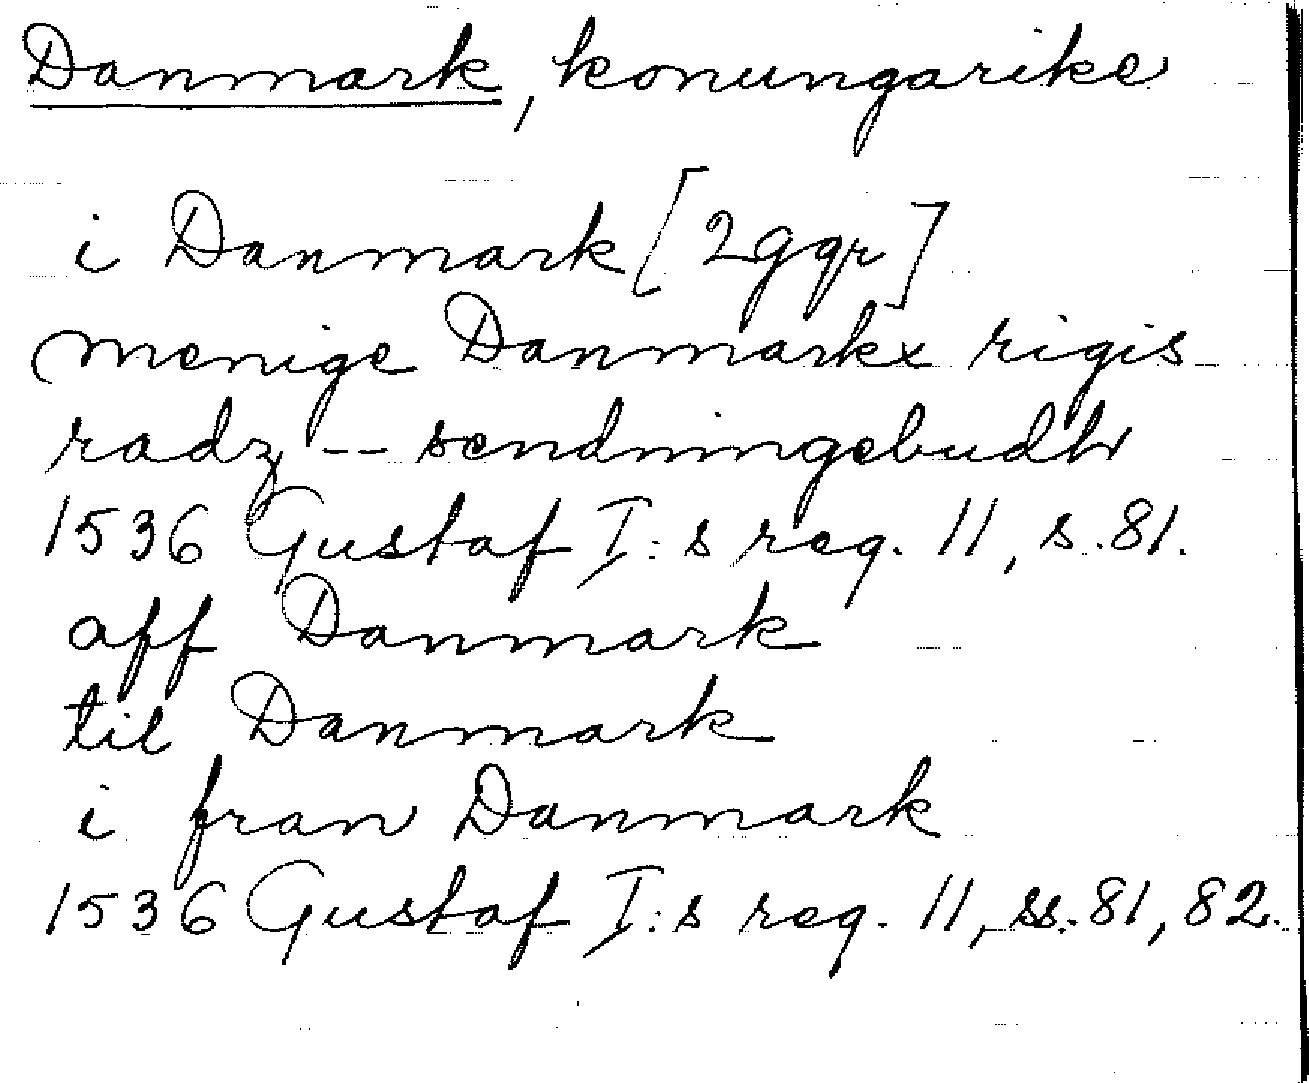 Danmark, konungarike
i Danmark [2 ggr]
menige Danmarkx rigis
radz -- sendningebudh
1536 Gustaf I:s reg. 11, s. 81.
aff Danmark
til Danmark
i fran Danmark
1536 Gustaf I:s reg. 11, ss. 81, 82.